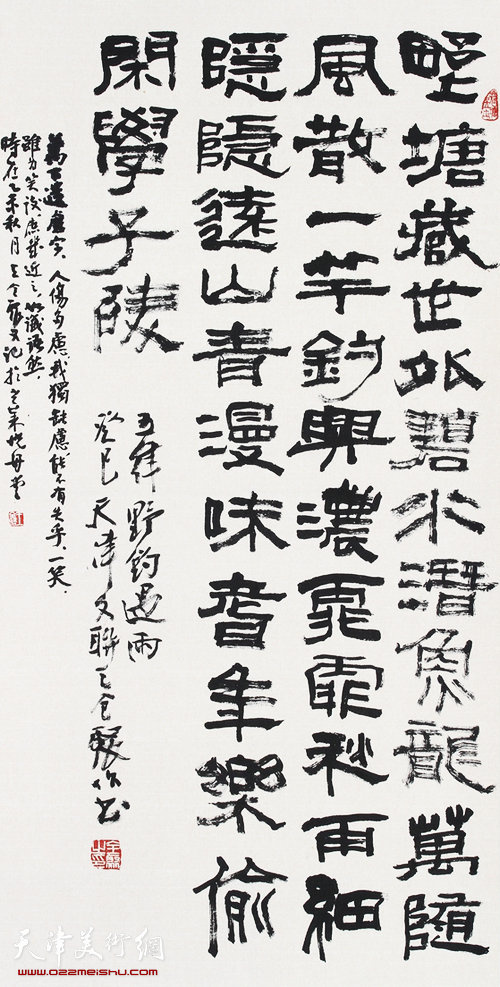 野塘藏世外碧水潛魚龍萬隨
風散一竿釣興濃霏霏秋雨細
隱隱遠山青漫味耆年樂偷
閑學子陵
五律 野釣遇雨
癸巳 天津文聯王全聚作書
萬下遺慮字、人傷多慮我獨缺慮能不有失乎、一笑、
雖為笑談、庶幾近之
時在乙未秋月王全聚又記於
天津美術網
www.022meishu.com